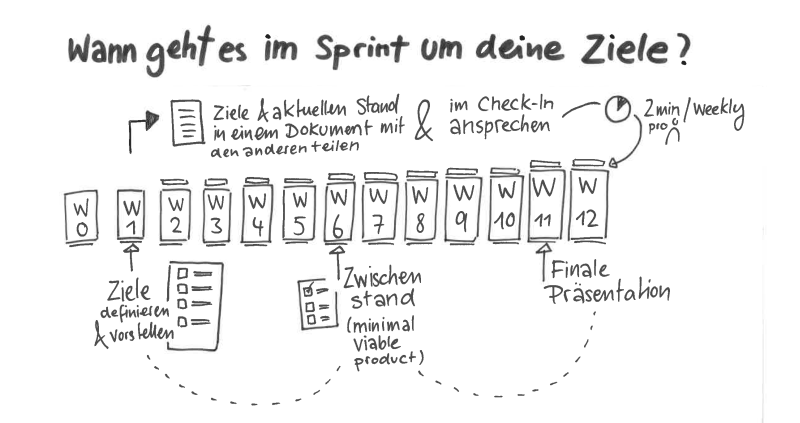 Wann geht es im Sprint um deine Ziele?
Ziele & aktuellen Stand
in einem Dokument mit
den anderen teilen
&
im Check-In
ansprechen
2min/weekly
pro
W
0
W
1
W
2
W
3
W
4
W
5
W
6
W
7
W
8
W
9
W
10
W
11
W
12
Ziele
definieren
& vorstellen
Zwischen
stand
(minimal
viable
product)
Finale
Präsentation